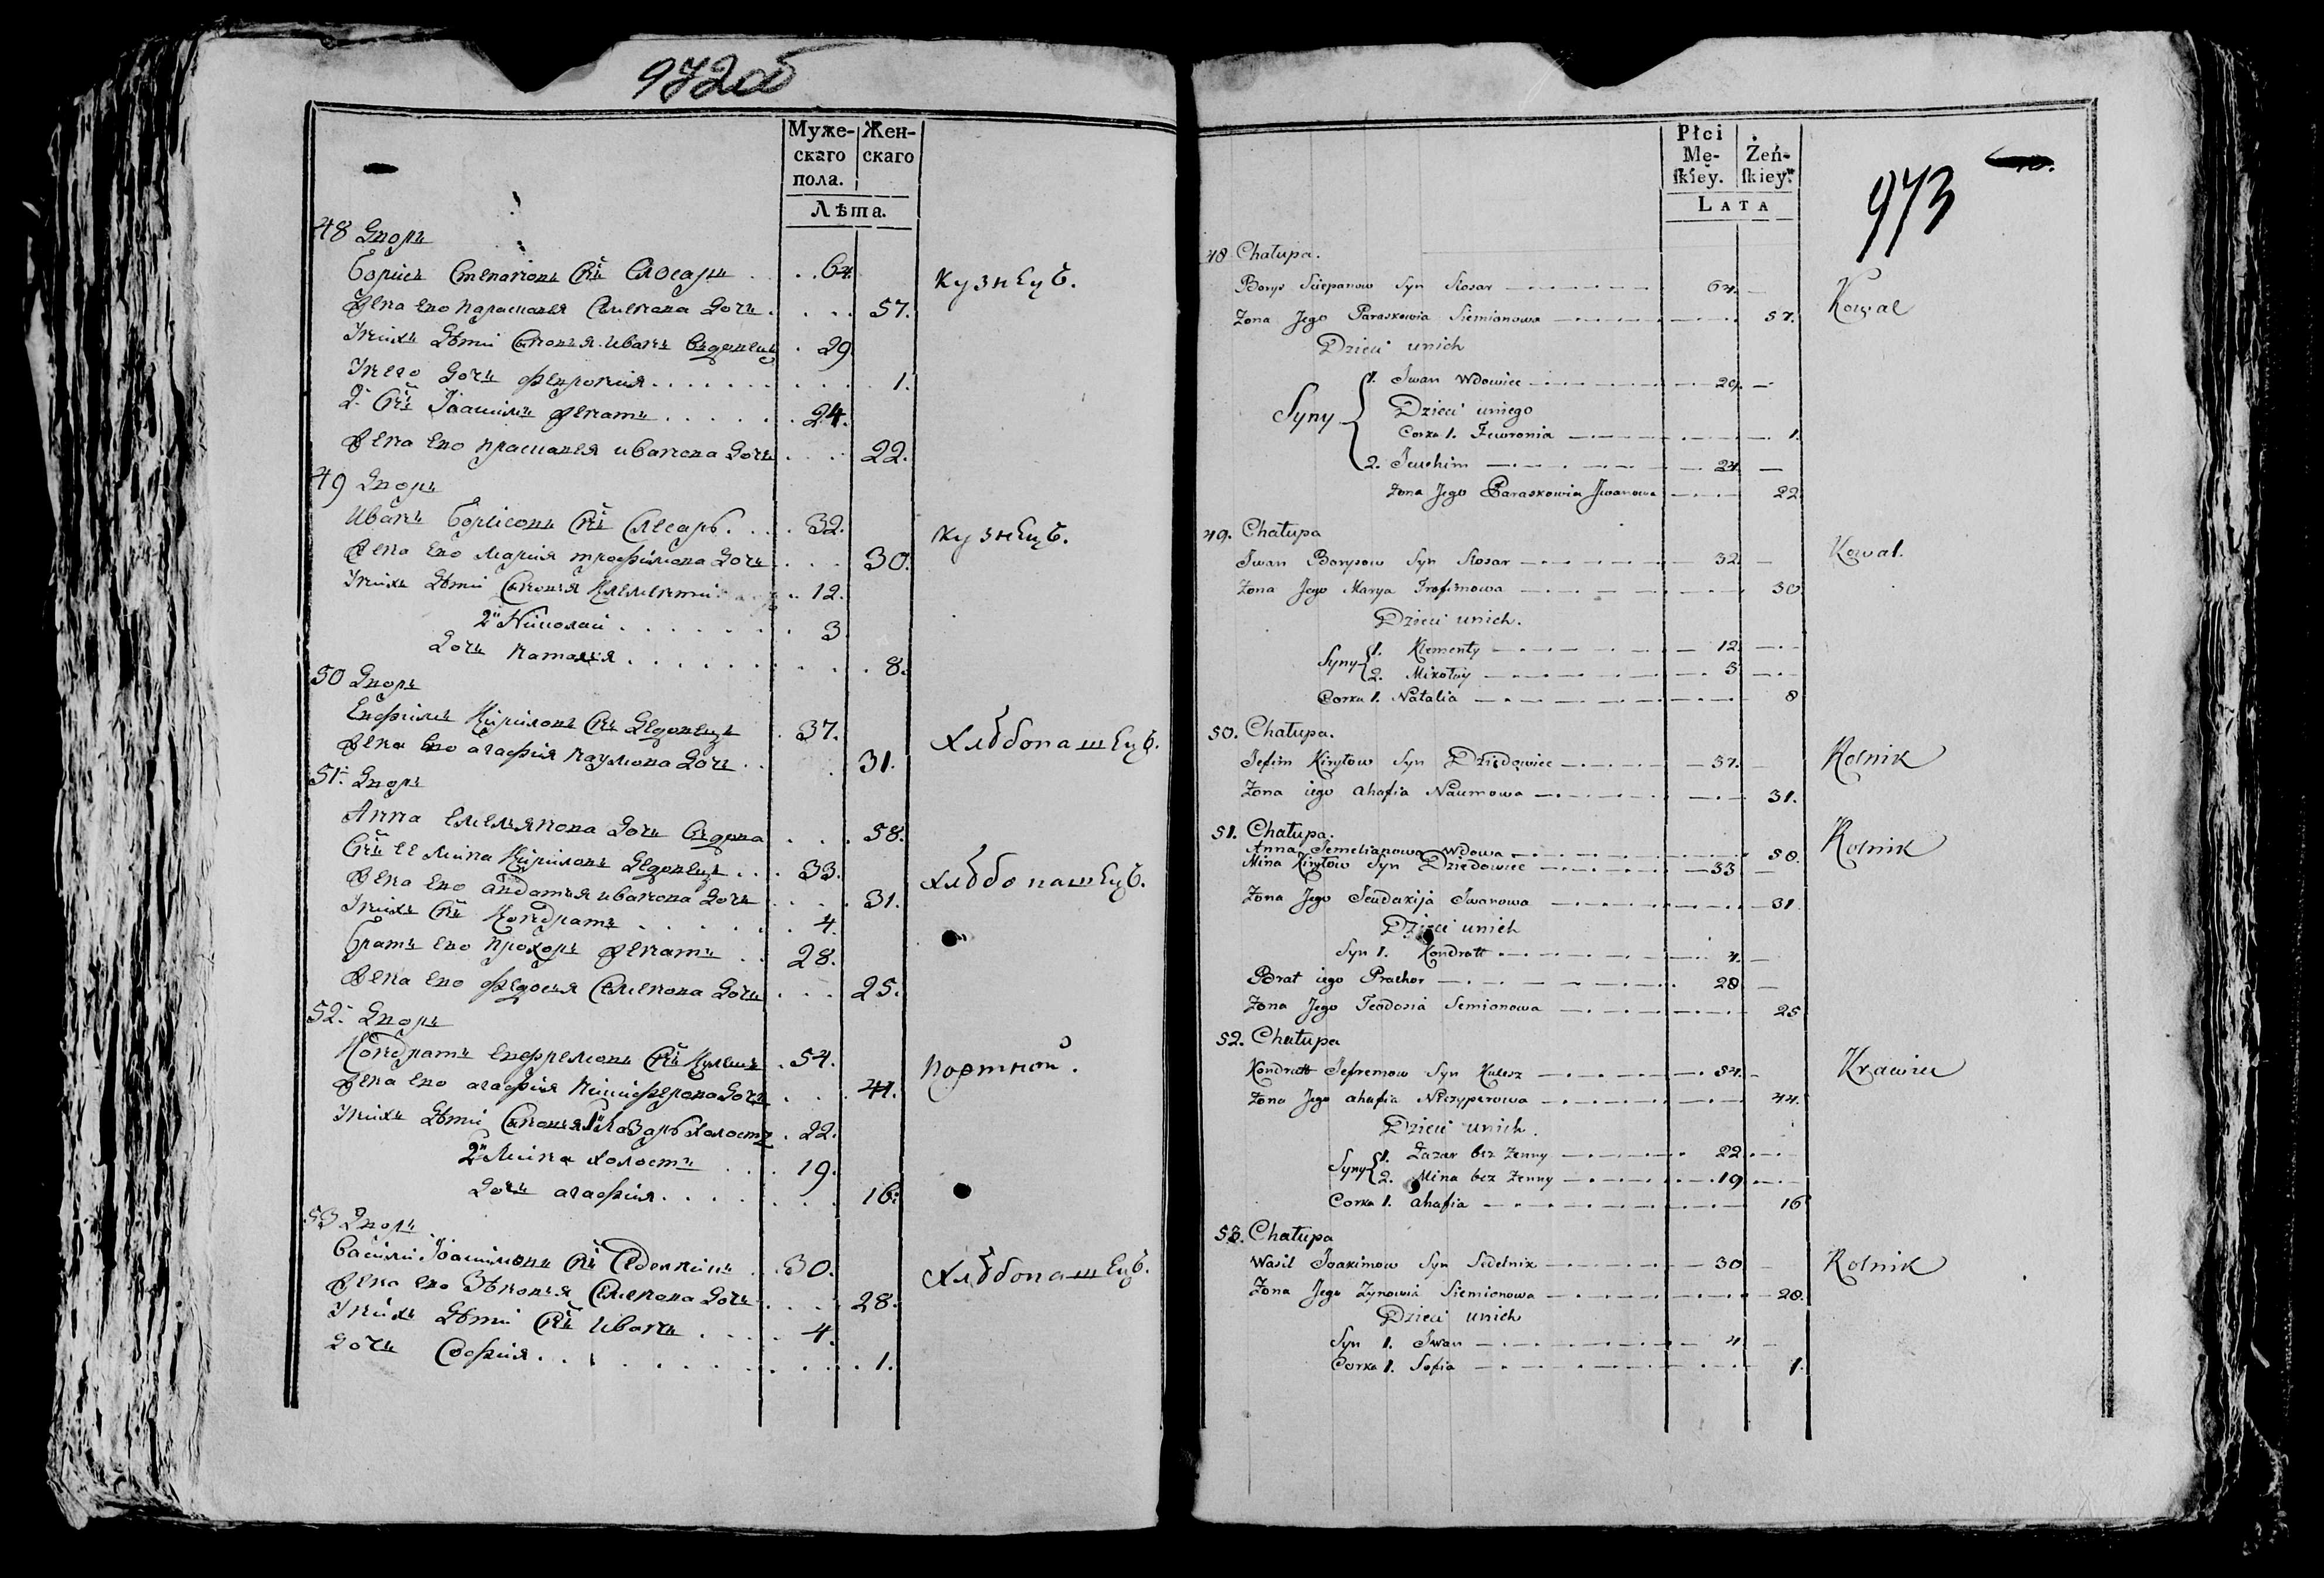 972об
Муже- Жен-
скаго скаго
пола.
Лѣта.
48 Дворъ
Борисъ Степановъ Снъ Слосаръ 64. Кузнецъ.
Жена ево Парасковея Семенова Дочъ 57.
У нихъ Дѣти Сыновья Иванъ вдовецъ 29
У него Дочъ Феврония 1.
2й Снъ Иоакимъ Женатъ 24.
Жена ево Прасковея Иванова Дочъ 22.
49 Дворъ
Иванъ Борисовъ Снъ Слесаръ. 32. Кузнецъ.
Жена ево Мария Трофимова Дочъ 30.
У нихъ Дѣти Сыновья Клементий 12.
2й Николай 3
Дочъ Наталия 8.
50 Дворъ
Ефимъ Кириловъ Снъ Дедовецъ 37. Хлѣбопашецъ.
Жена ево Агафия Наумова Дочъ 31.
51. Дворъ
Анна Емельянова Дочъ вдова 58.
Снъ ее Мина Кириловъ Дедовецъ 33. Хлѣбопашецъ.
Жена ево Авдотья Иванова Дочъ 31.
У нихъ Снъ Кондратъ 4.
Братъ ево Прохоръ Женатъ 28.
Жена ево Федосия Семенова Дочъ 25.
52. Дворъ
Кондратъ Ефремовъ Снъ Кулешъ 54. Портной.
Жена ево Агафия Никиферова Дочъ 44.
У нихъ Дѣти Сыновья 1й Лазаръ холостъ 22.
2й Мина холостъ 19.
Дочъ Агафия 16.
53 Дворъ
Василий Иоакимовъ Снъ Седелникъ 30. Хлѣбопашецъ.
Жена ево Зѣновья Семенова Дочъ 28.
У нихъ Дѣти Снъ Иванъ 4.
Дочъ София 1.
Płci
Mę- Żeń-
ſkiey. ſkiey.
LATA
973
48 Chałupa.
Borys Sciepanow Syn Slosar 64. Kowal
Zona Jego Paraskowia Siemionowa 57.
Dzieci unich
Syny 1. Jwan Wdowiec 29.
Dzieci uniego
Corka 1. Fewronia 1.
2. Jeuchim 24.
Zona Jego Paraskowia Jwanowa 22
49. Chałupa
Jwan Borysow Syn Slosar 32. Kowal.
Zona Jego Marya Trofimowa 30
Dzieci unich.
Syny 1. Klementy 12
2. Mikołay 3
Corka 1. Natalia 8
50. Chałupa.
Jefim Kiryłow Syn Dziedowiec 37. Rolnik
Zona iego ahafia Naumowa 31.
51. Chałupa.
Anna Jemelianowa Wdowa 58. Rolnik
Mina Kiryłow Syn Dziedowiec 33
Zona Jego Jeudakija Jwanowa 31
Dzieci unich
Syn 1. Kondratt 4.
Brat iego Prachor 28
Zona Jego Teodosia Semionowa 25
52. Chałupa
Kondratt Jefremow Syn Kulesz 54. Krawiec
Zona Jego ahafia Niczyperowa 44.
Dzieci unich.
Syny 1. Łazar bez Zenny 22.
2. Mina bez Zenny 19
Corka 1. ahafia 16
53. Chałupa
Wasil Joakimow Syn Sedelnik 30 Rolnik
Zona Jego Zynowia Siemionowa 28.
Dzieci unich
Syn 1. Jwan 4
Corka 1. Sofia 1.